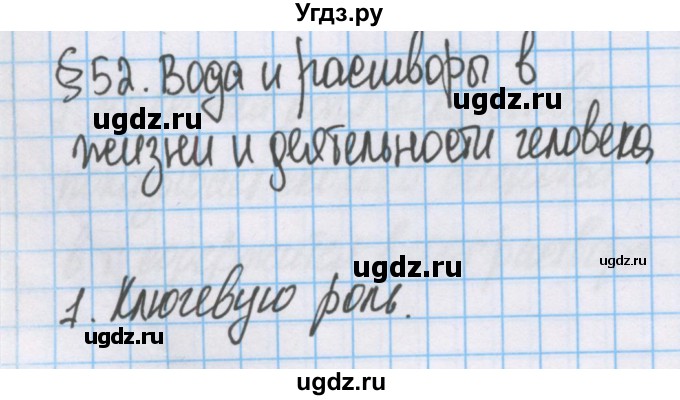 Угдз.ру
§ 52. Вода и растворы в
ugdz.ru ugdz.ru
жизни и деятельности человека
ugdz.ru
ugdz.ru
1. Ключевую роль.
ugdz.ru ugdz.ru
ugdz.ru